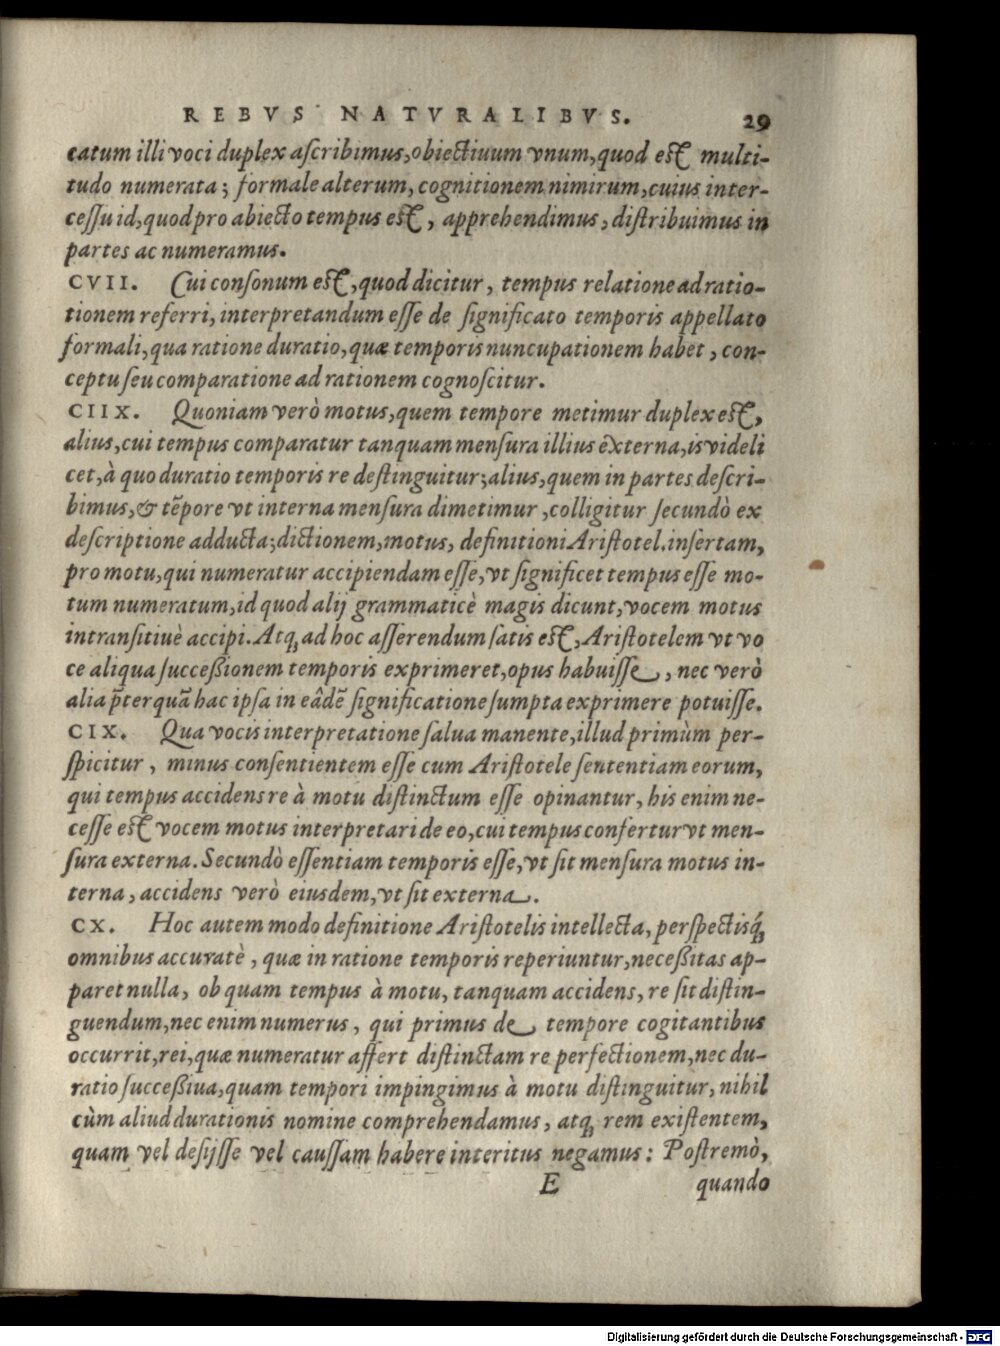 REBVS NATVRALIBVS. 29
catum illi voci duplex aſcribimus, obiectiuum vnum, quod eſt multi-
tudo numerata; formale alterum, cognitionem nimirum, cuius inter-
ceſſu id, quod pro abiecto tempus eſt, apprehendimus, diſtribuimus in
partes ac numeramus.
CVII. Cui conſonum eſt, quod dicitur, tempus relatione ad ratio-
tionem referri, interpretandum eſſe de ſignificato temporis appellato
formali, qua ratione duratio, quæ temporis nuncupationem habet, con-
ceptu ſeu comparatione ad rationem cognoſcitur.
CIIX. Quoniam verò motus, quem tempore metimur duplex eſt,
alius, cui tempus comparatur tanquam menſura illius externa, is videli
cet, à quo duratio temporis re deſtinguitur; alius, quem in partes deſcri-
bimus, & tẽpore vt interna menſura dimetimur, colligitur ſecundò ex
deſcriptione adducta; dictionem, motus, definitioni Ariſtotel. inſertam,
pro motu, qui numeratur accipiendam eſſe, vt ſignificet tempus eſſe mo-
tum numeratum, id quod alij grammaticè magis dicunt, vocem motus
intranſitiuè accipi. Atq; ad hoc aſſerendum ſatis eſt, Ariſtotelem vt vo
ce aliqua ſucceßionem temporis exprimeret, opus habuiſſe, nec verò
alia p̃terquã hac ipſa in eâdẽ ſignificatione ſumpta exprimere potuiſſe.
CIX. Qua vocis interpretatione ſalua manente, illud primùm per-
ſpicitur, minus conſentientem eſſe cum Ariſtotele ſententiam eorum,
qui tempus accidens re à motu diſtinctum eſſe opinantur, his enim ne-
ceſſe eſt vocem motus interpretari de eo, cui tempus confertur vt men-
ſura externa. Secundò eſſentiam temporis eſſe, vt ſit menſura motus in-
terna, accidens verò eiusdem, vt ſit externa.
CX. Hoc autem modo definitione Ariſtotelis intellecta, perſpectisq́;
omnibus accuratè, quæ in ratione temporis reperiuntur, neceßitas ap-
paret nulla, ob quam tempus à motu, tanquam accidens, re ſit diſtin-
guendum, nec enim numerus, qui primus de tempore cogitantibus
occurrit, rei, quæ numeratur affert diſtinctam re perfectionem, nec du-
ratio ſucceßiua, quam tempori impingimus à motu diſtinguitur, nihil
cùm aliud durationis nomine comprehendamus, atq; rem exiſtentem,
quam vel deſijſſe vel cauſſam habere interitus negamus: Poſtremò,
E quando
Digitalisierung gefördert durch die Deutsche Forschungsgemeinschaft - DFG